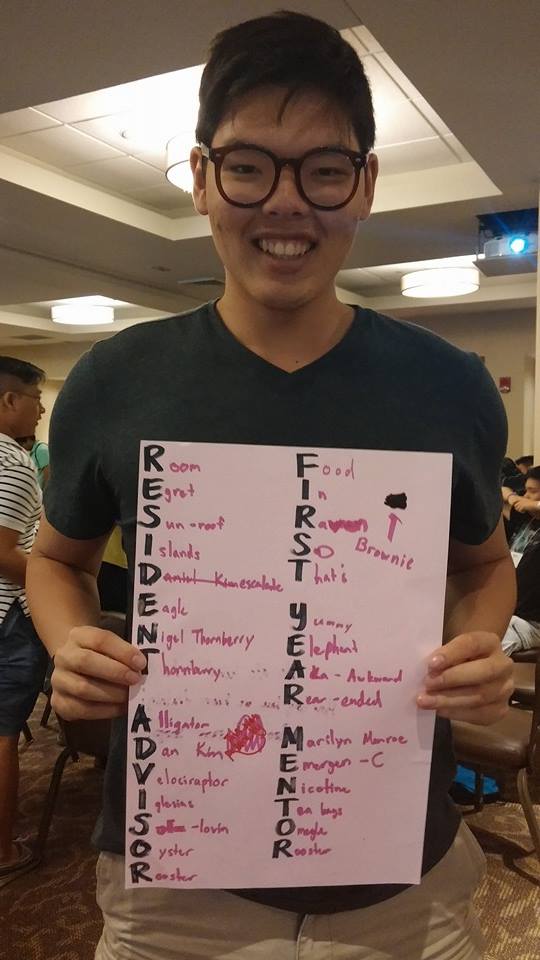 Room
Egret
Sun-roof
Islands
Daniel Kimescalade
Eagle
Nigel Thornberry
Thornberry
Alligator
Dan Kim
Velociraptor
Iglesias
-lovin
Oyster
Rooster
Food
In
S
That's
Brownie
Yummy
Elephant
Aka - Awkward
Rear-ended
Marilyn Monroe
Emergen-C
Nicotine
Tea bags
Omegle
Rooster